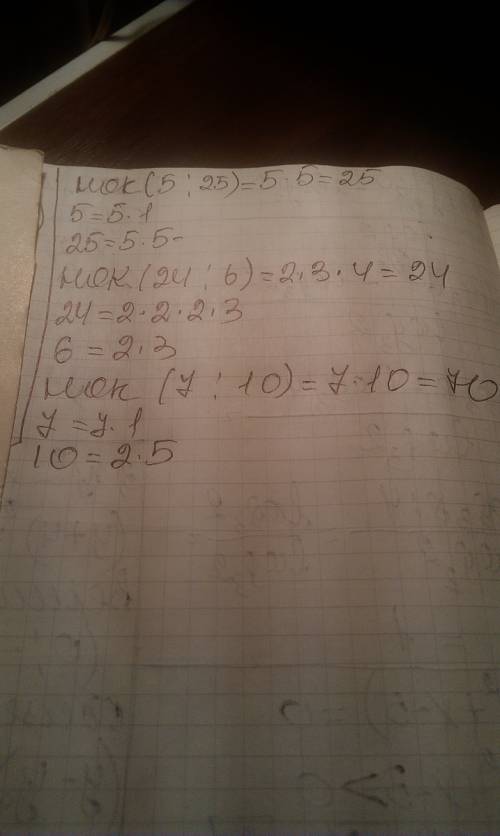 нок (5 ; 25) = 5 · 5 = 25
5 = 5 · 1
25 = 5 · 5
нок (24 ; 6) = 2 · 3 · 4 = 24
24 = 2 · 2 · 2 · 3
6 = 2 · 3
нок (7 ; 10) = 7 · 10 = 70
7 = 7 · 1
10 = 2 · 5